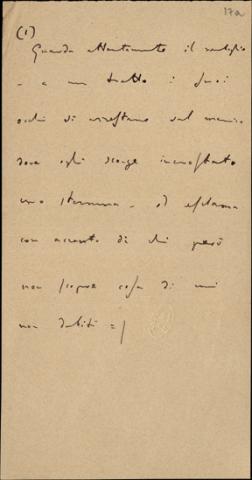 17a
(1)
Guarda attentamente il ventaglio
– a un tratto i suoi
occhi si arrestano sul manico
dove egli scorge incrostato
uno stemma – ed esclama
con accento di chi però
non scopre cosa di cui
non dubiti =/